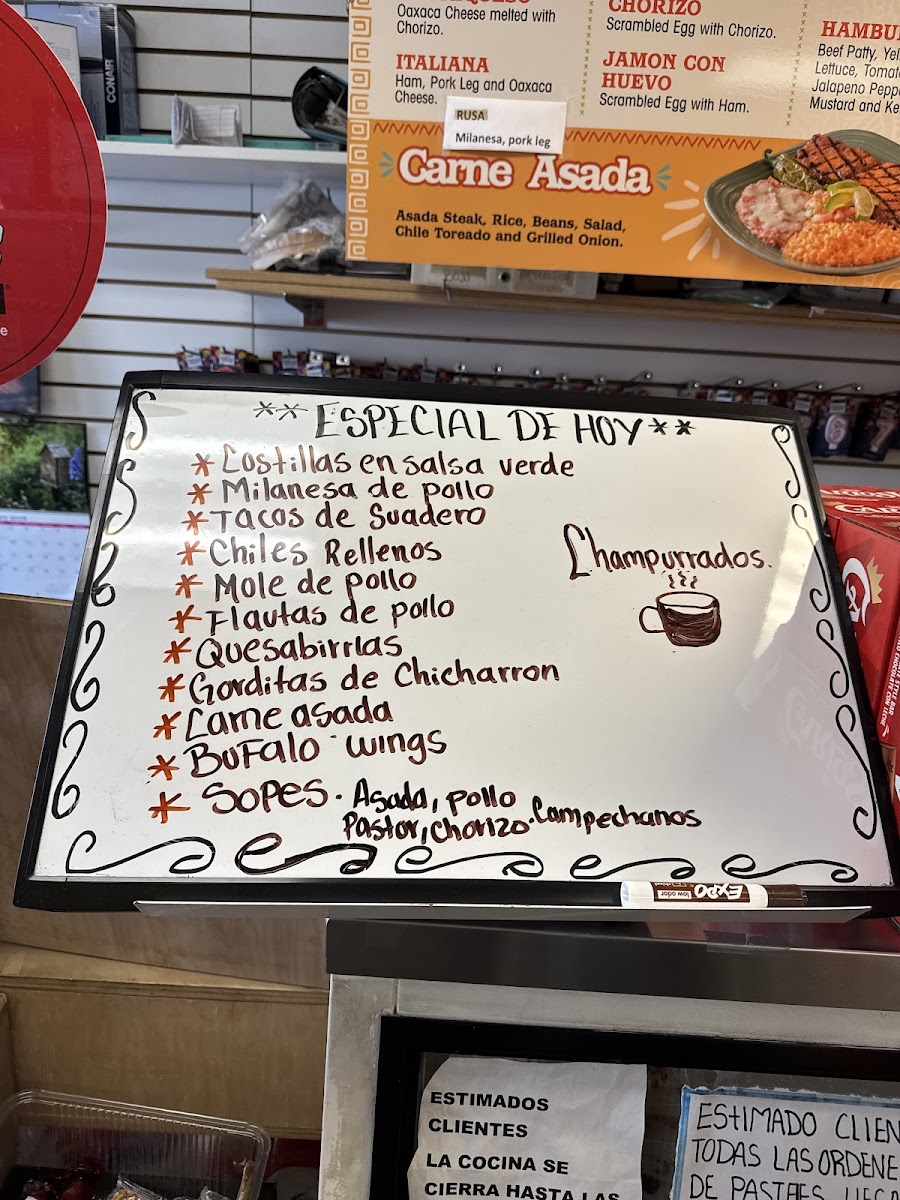 Oaxaca Cheese melted with
Chorizo.
ITALIANA
Ham, Pork Leg and Oaxaca
Cheese.
RUSA
Milanesa, pork leg
CHORIZO
Scrambled Egg with Chorizo.
JAMON CON
HUEVO
Scrambled Egg with Ham.
Beef Patty,
Lettuce,
Jalapeno
Mustard and
Carne Asada
Asada Steak, Rice, Beans, Salad,
Chile Toreado and Grilled Onion.
CONAIR
** ESPECIAL DE HOY **
* Costillas en salsa verde
* Milanesa de pollo
* Tacos de Suadero
* Chiles Rellenos
* Mole de pollo
* Flautas de pollo
* Quesabirrias
* Gorditas de Chicharron
* Carne asada
* Bufalo wings
* Sopes. Asada, pollo
Pastor, Chorizo. Campechanos
Champurrados.
EXPO
low odor
ESTIMADOS
CLIENTES
LA COCINA SE
CIERRA HASTA LAS
ESTIMADO
TODAS LAS
DE